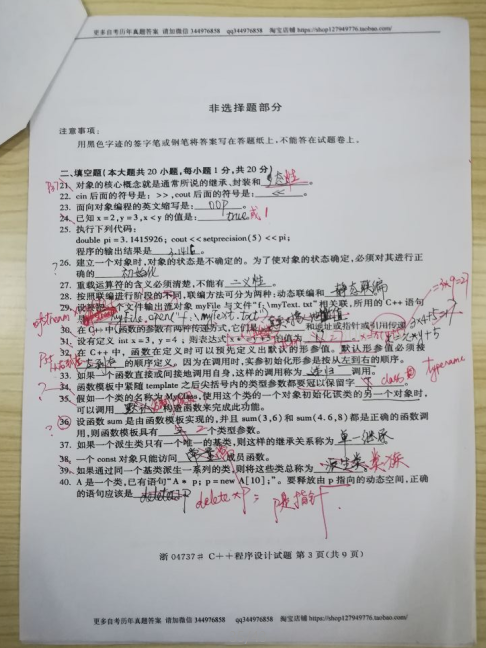 更多自考历年真题答案 请加微信344976858 qq344976858 淘宝店铺https://shop127949776.taobao.com/
非选择题部分
注意事项：
用黑色字迹的签字笔或钢笔将答案写在答题纸上，不能答在试题卷上。
二、填空题（本大题共20小题，每小题1分，共20分）
21. 对象的核心概念就是通常所说的继承、封装和 多态性 。
22. cin 后面的符号是：>>，cout 后面的符号是： << 。
23. 面向对象编程的英文缩写是： OOP 。
24. 已知 x=2,y=3,x<y 的值是： true或1
25. 执行下列代码：
double pi = 3.1415926; cout << setprecision(5) << pi;
程序的输出结果是 3.1416 。
26. 建立一个对象时，对象的状态是不确定的。为了使对象的状态确定，必须对其进行正
确的 初始化
27. 重载运算符的含义必须清楚，不能有 二义性 。
28. 按照联编进行阶段的不同，联编方法可分为两种：动态联编和 静态联编
29. 设要把一个文件输出流对象 myFile 与文件“f:\myText.txt”相关联，所用的 C++ 语句
ofstream myFile.open("f:\myText.txt")
30. 在 C++ 中，函数的参数有两种传递方式，它们是 和地址或指针或引用传递
31. 设有定义 int x = 3, y = 4；则表达式 的值为
32. 在 C++ 中，函数在定义时可以预先定义出默认的形参值。默认形参值必须按
的顺序定义。因为在调用时，实参初始化形参是按从左到右的顺序。
33. 如果一个函数直接或间接地调用自身，这样的调用称为 递归 调用。
34. 函数模板中紧随 template 之后尖括号内的类型参数都要冠以保留字 class typename
35. 假如一个类的名称为 MyClass，使用这个类的一个对象初始化该类的另一个对象时，
可以调用 默认 构造函数来完成此功能。
36. 设函数 sum 是由函数模板实现的，并且 sum(3,6) 和 sum(4.6,8) 都是正确的函数调
用，则函数模板具有 2 个类型参数。
37. 如果一个派生类只有一个唯一的基类，则这样的继承关系称为 单一继承
38. 一个 const 对象只能访问 常量 成员函数。
39. 如果通过同一个基类派生一系列的类，则将这些类总称为 派生类 类族
40. A 是一个类，已有语句“A * p; p=new A[10];”。要释放由 p 指向的动态空间，正确
的语句应该是 delete p delete *p; p是指针
浙 04737# C++程序设计试题 第 3 页（共 9 页）
更多自考历年真题答案 请加微信344976858 qq344976858 淘宝店铺https://shop127949776.taobao.com/